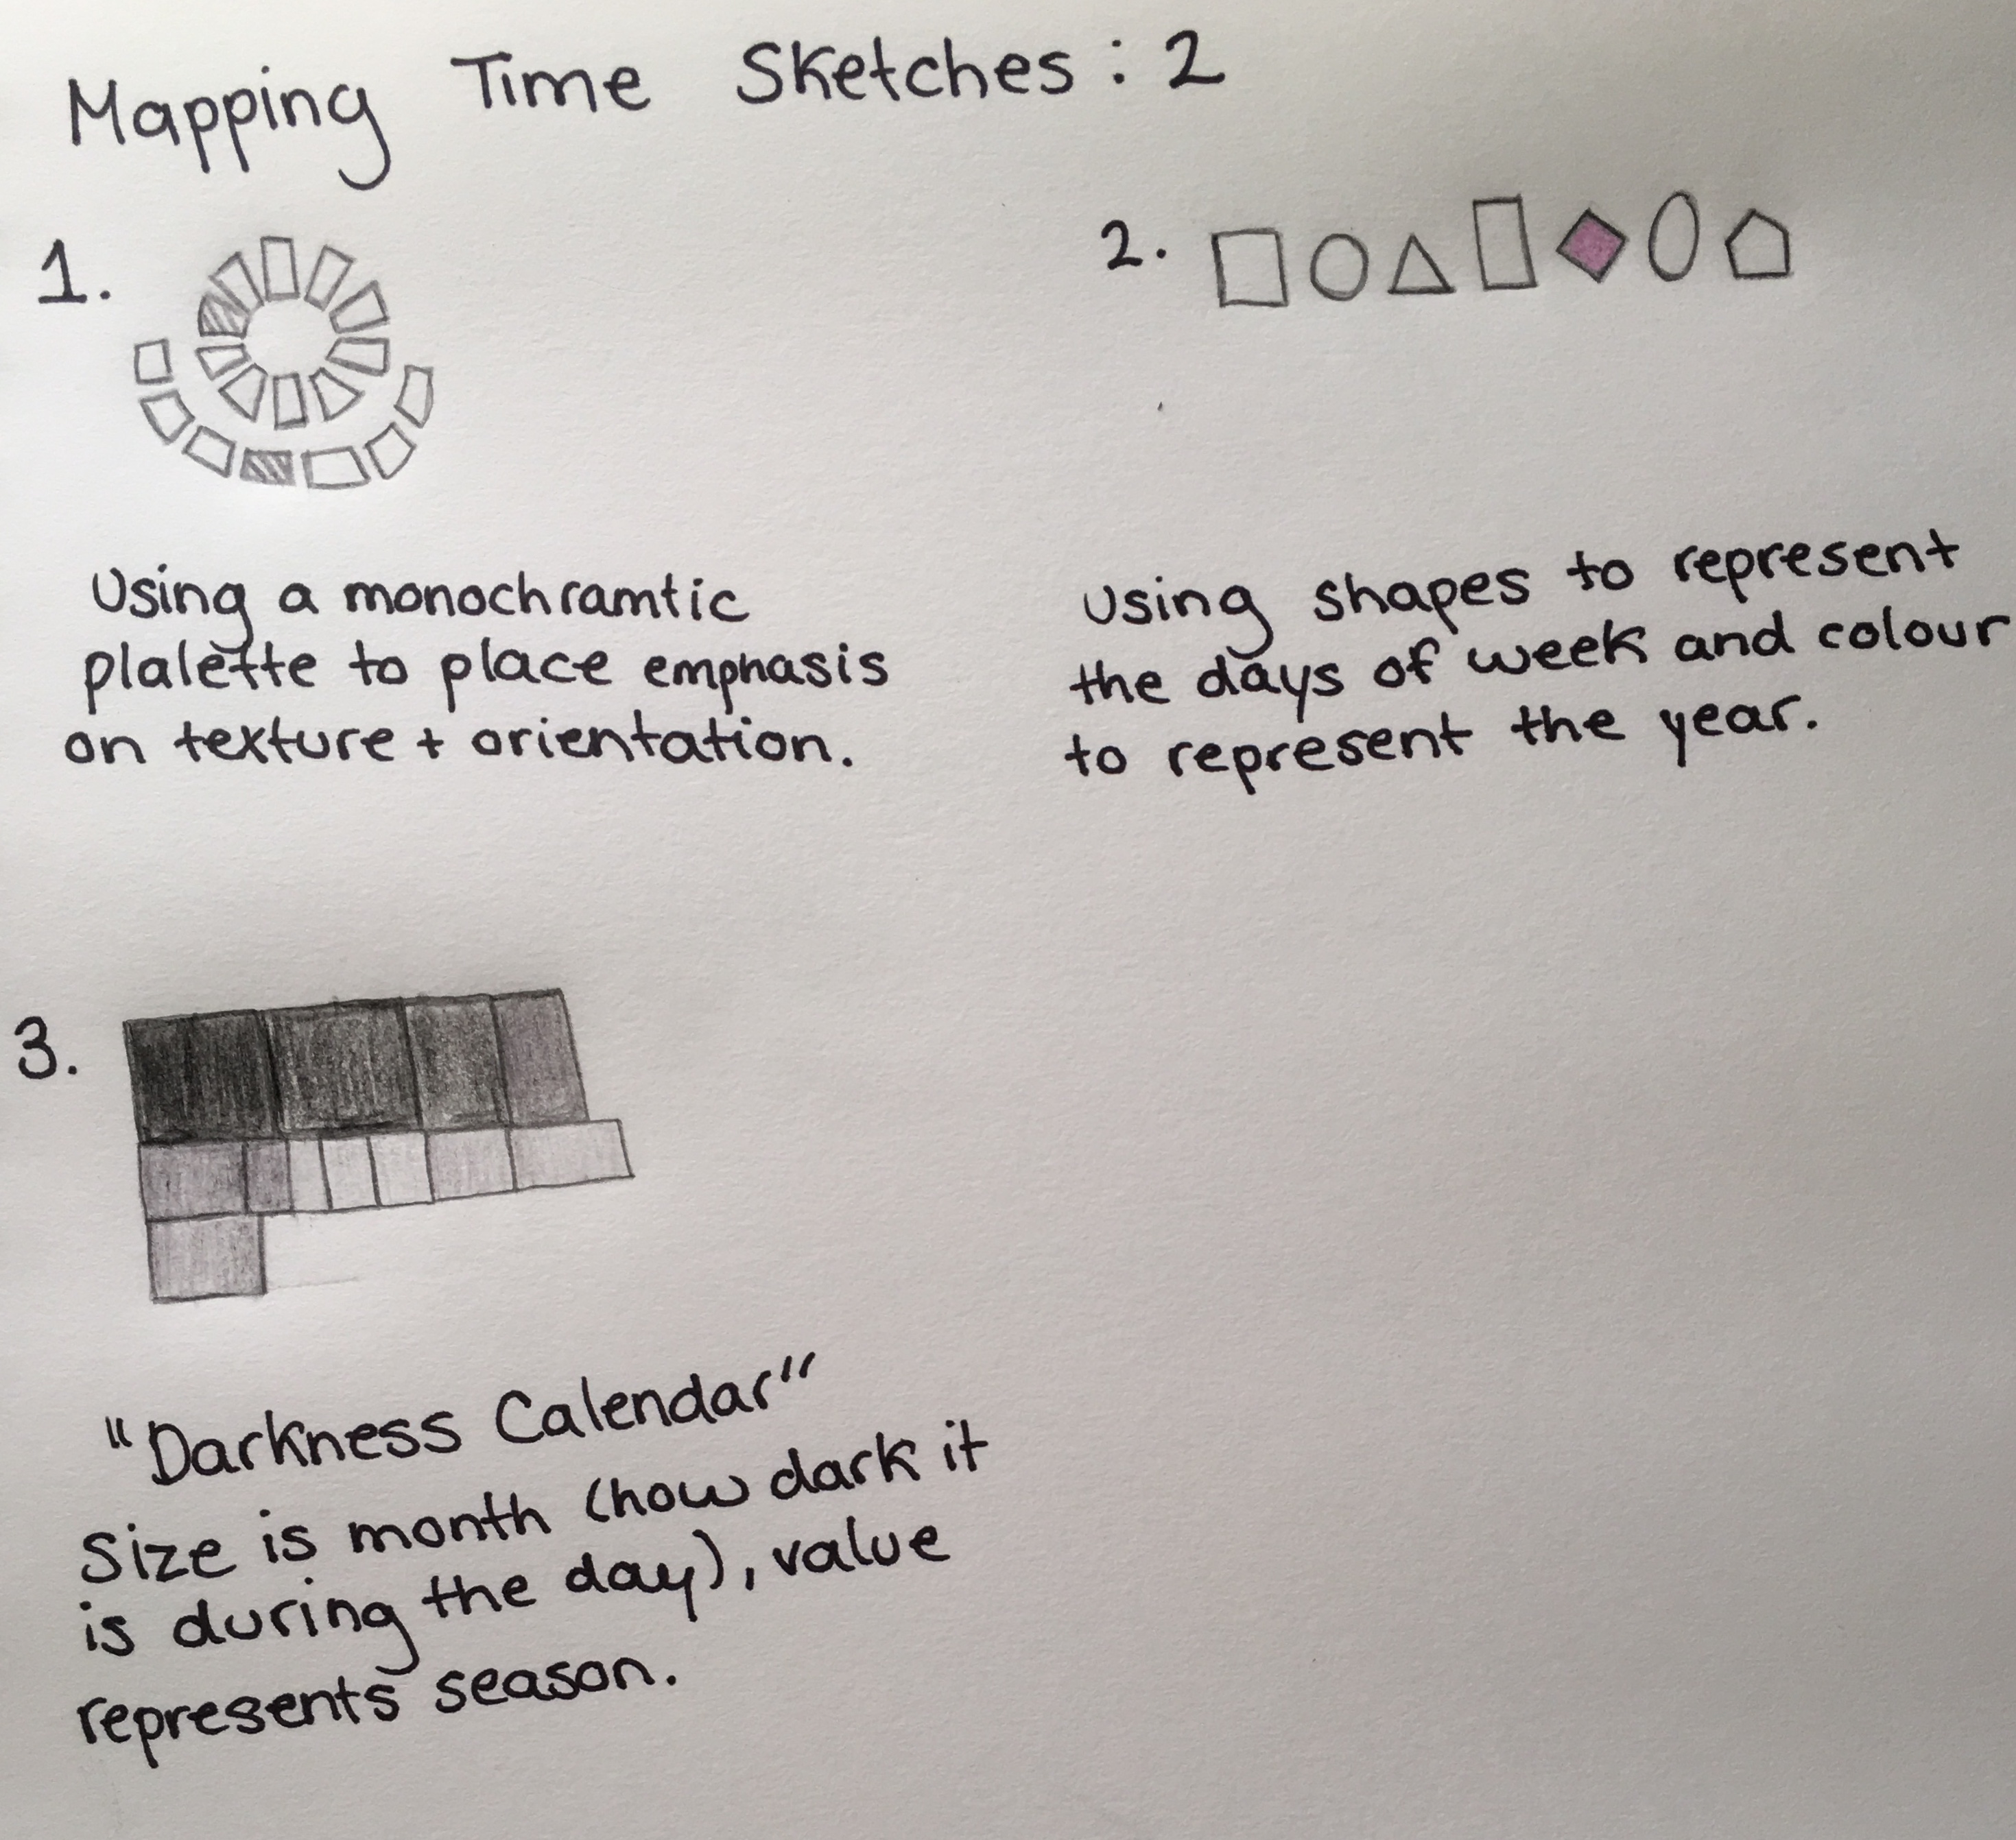 Mapping Time Sketches: 2
1.
2.
Using a monochramtic
plalette to place emphasis
on texture + orientation.
Using shapes to represent
the days of week and colour
to represent the year.
3.
"Darkness Calendar"
Size is month (how dark it
is during the day), value
represents season.